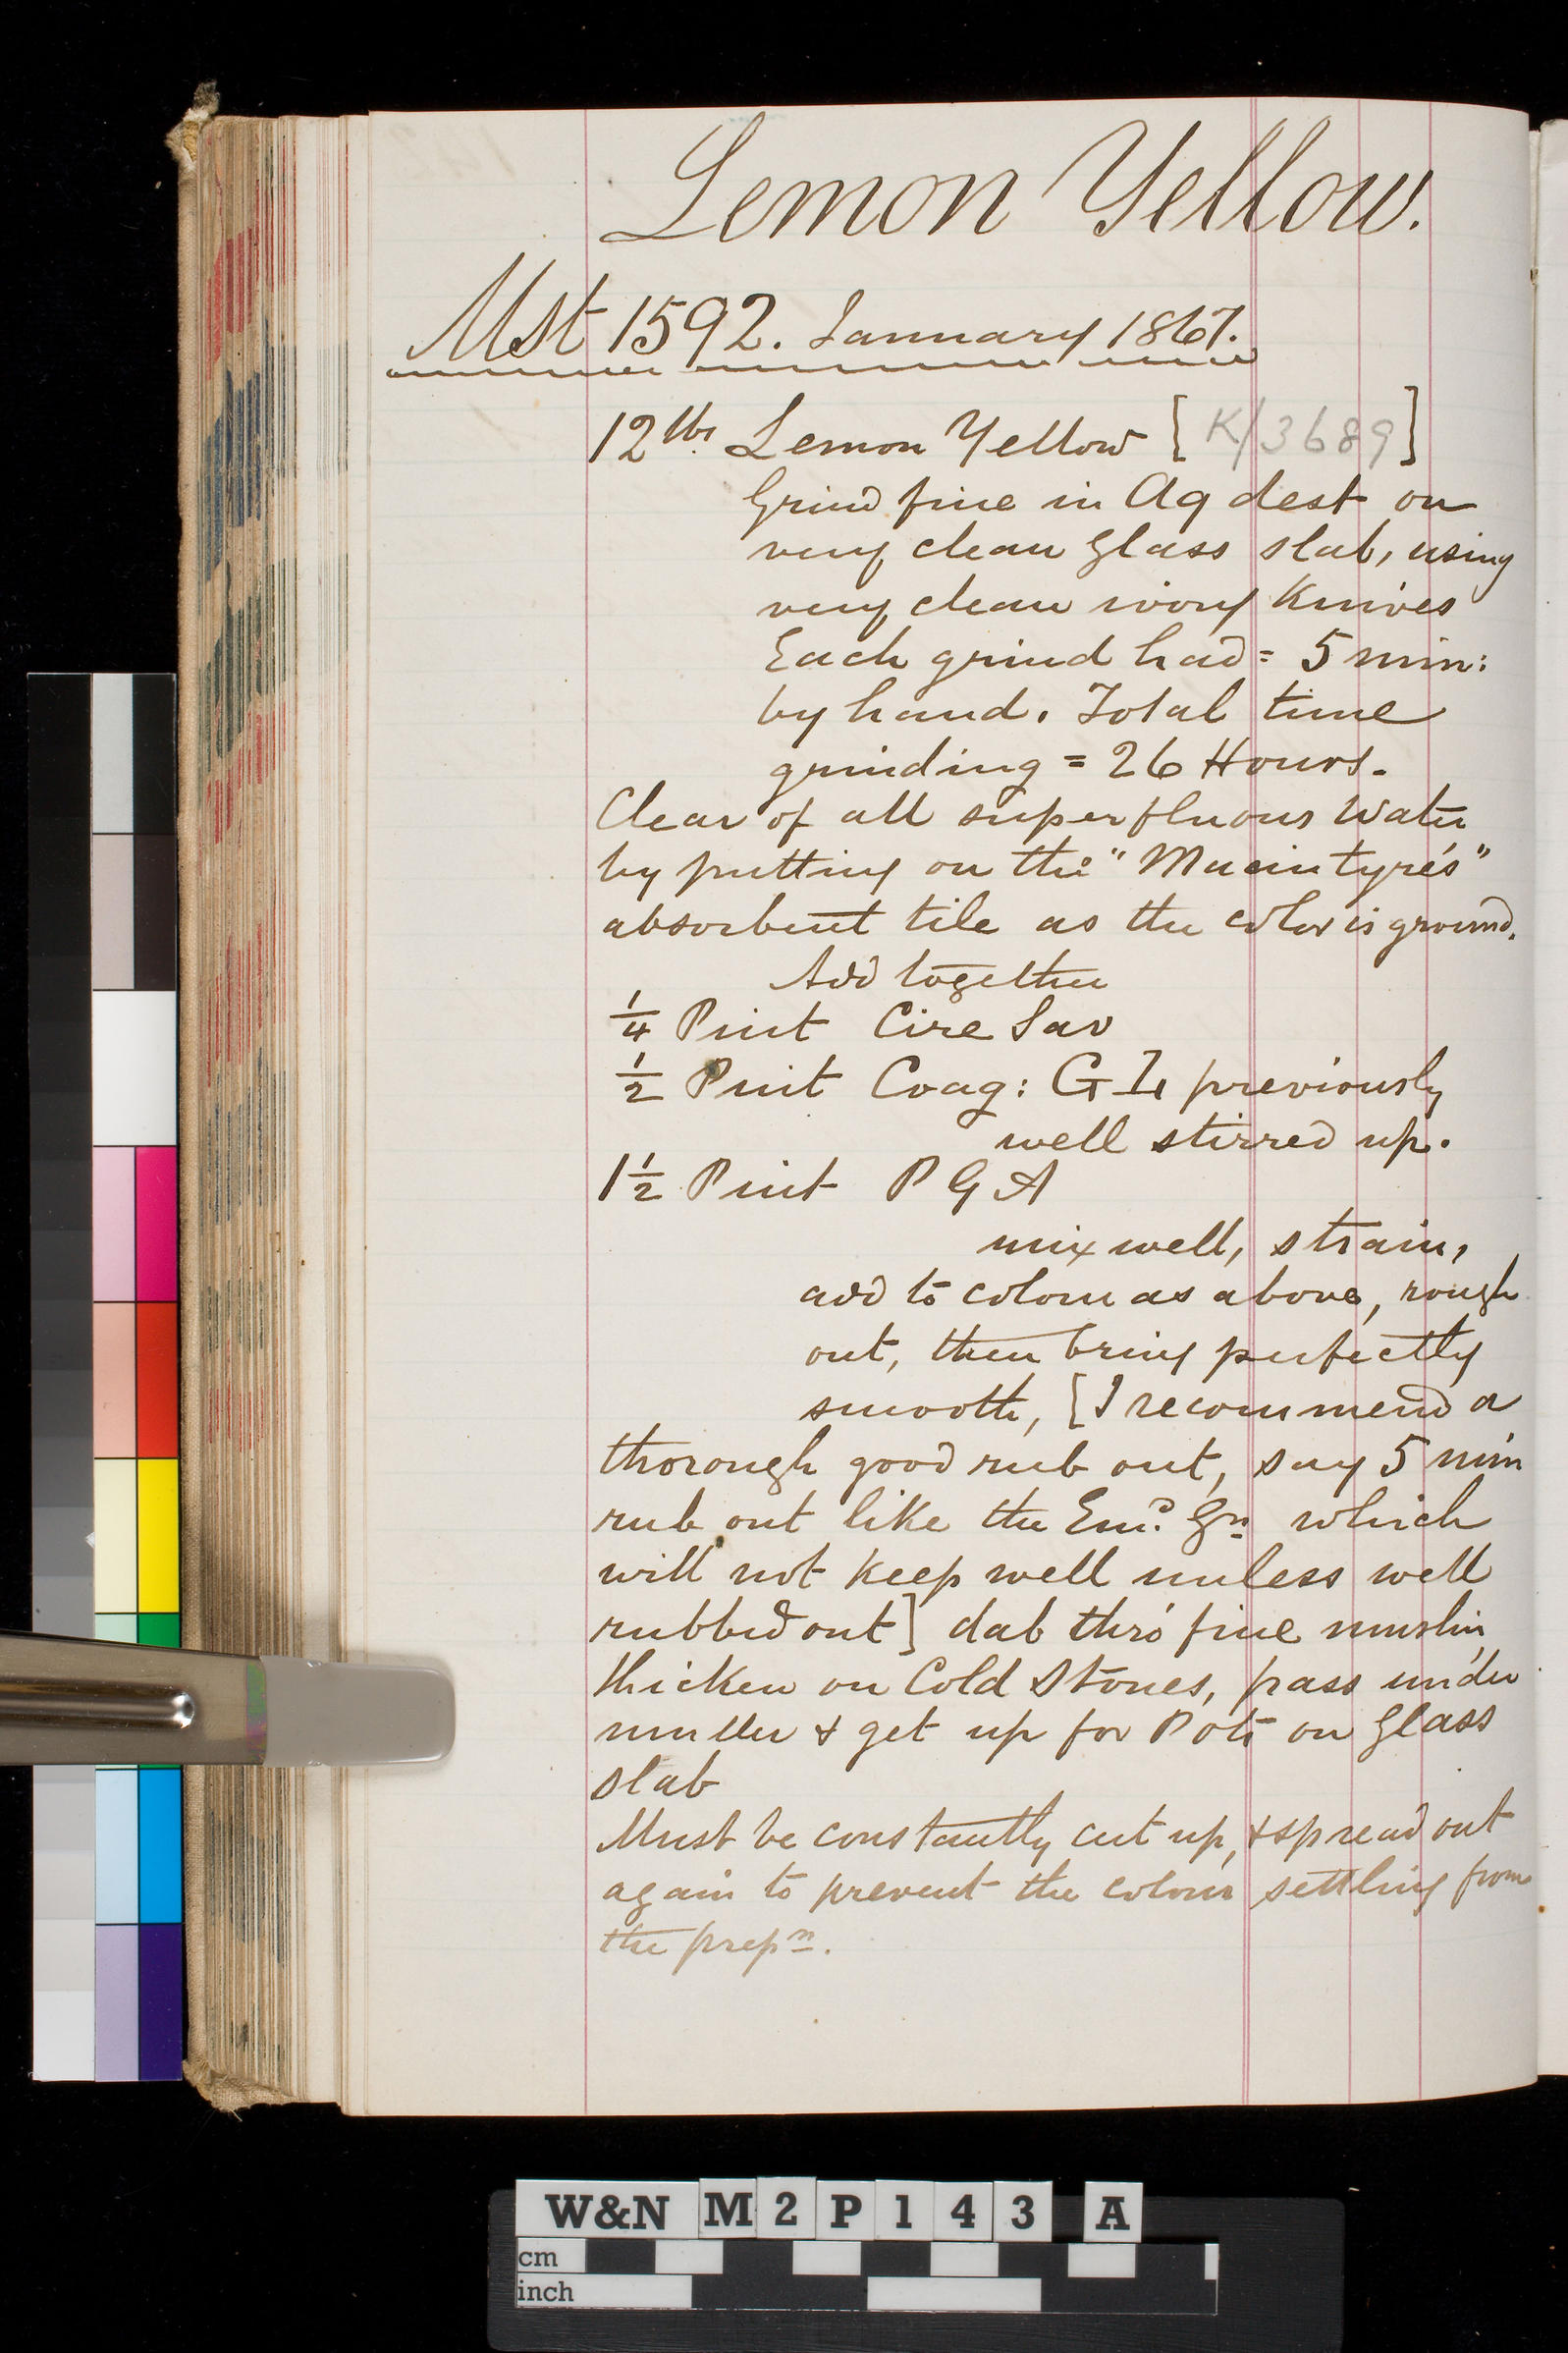 Lemon Yellow.
Mst 1592. January 1867.
12 lbs. Lemon Yellow [K/3689]
Grind fine in Aq dest on
very clean glass slab, using
very clean ivory Knives
Each grind had = 5 min:
by hand. Total time
grinding = 26 Hours.
Clear of all superfluous water
by putting on the "Macintyre's"
absorbent tile as the color is ground.
Add together
1/4 Pint Cire Sav
1/2 Pint Coag: G T previously
well stirred up.
1 1/2 Pint P G A
mix well, strain,
add to colour as above, rough
out, then bring perfectly
smooth, [I recommend a
thorough good rub out, say 5 min
rub out like the Emd. Gn which
will not keep well unless well
rubbed out] dab thro' fine muslin
thicken on Cold Stones, pass under
muller & get up for Pots on glass
slab
Must be constantly cut up, & spread out
again to prevent the colour settling from
the prepn.
W&N M2P143 A
cm
inch